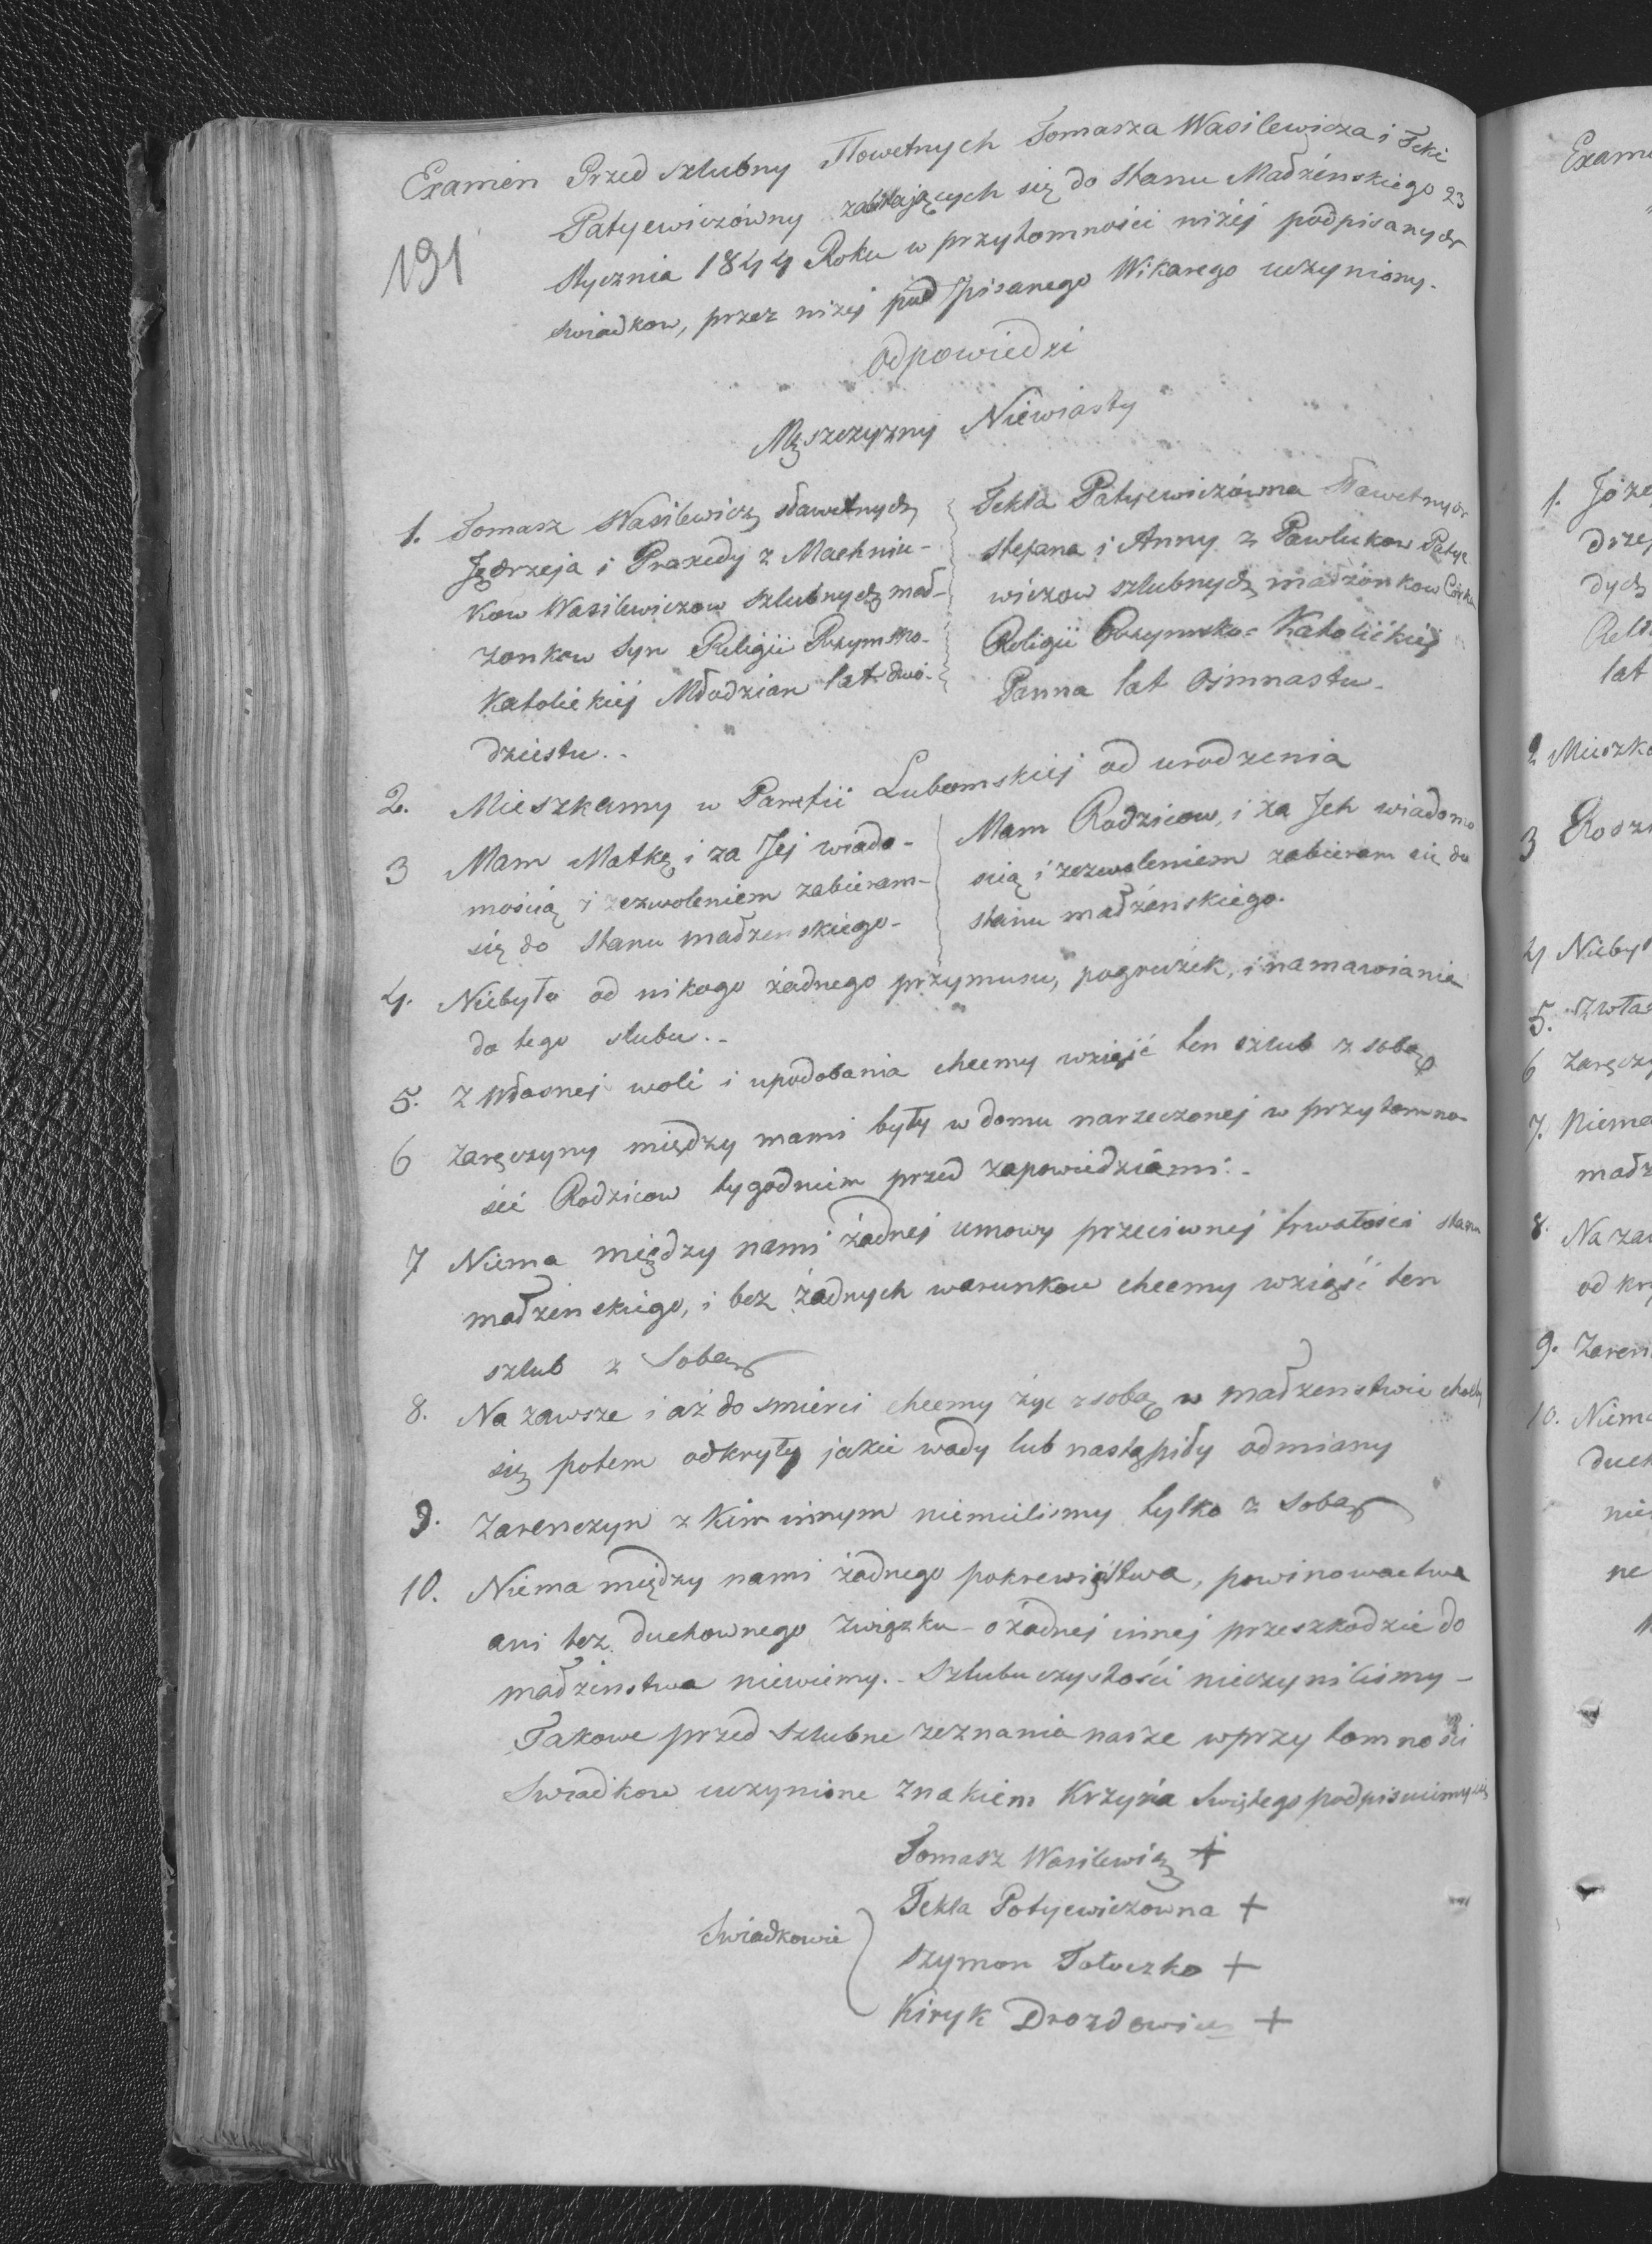 Examen Przed szlubny Słowetnych Tomasza Wasilewicza i Tekli
Patyjewiczówny zabierających się do Stanu Madżenskiego 23
191
Stycznia 1844 Roku w przytomności niżéj podpisanych
swiadkow, przez niżej podpisanego Wikarego uczyniony.
Odpowiedzi
Męszczyzny Niewiasty
1. Tomasz Wasilewicz sławetnych
Jędrzeja i Praxedy z Machniu-
kow Wasilewiczow szlubnych mał-
zonkow Syn Religii Rzymsko-
Katolickiéj Młodzian lat dwó-
dziestu..
Tekla Patyjewiczówna Sławetnych
Stefana i Anny z Pawlukow Patyje
wiczow szlubnych madżonkow Córka
Religii Rzymsko=Katolickiéj
Panna lat Osimnastu.
2. Mieszkamy w Parafii Lubomskiej od urodzenia
3 Mam Matkę i za Jéj wiado-
mością i zezwoleniem zabieram-
się do Stanu madżenskiego-
Mam Rodzicow, i za Jch wiadomo
scią i zezwoleniem zabieram się do
stanu madżenskiego.
4. Niebyło od nikogo żadnego przymusu, pogrużek, i namawiania
do tego slubu..
5. Z własnej woli i upodobania chcemy wziąść ten szlub z sobą
6 Zaręczyny między mami były w domu narzeczonej w przytomno-
ści Rodzicow tygodniem przed zapowiedziami.-
7 Niema między nami żadnéj umowy przeciwnej trwałości stanu
madżenskiego, i bez żadnych warunkow chcemy wziąść ten
szlub z Sobą
8. Na zawsze i aż do smierci chcemy żyć z sobą w madżenstwie choćby
się potem odkryły jakie wady lub nastąpiły odmiany
9. Zarenczyn z Kim innym niemielismy tylko z Sobą
10. Niema między nami żadnego pokrewięstwa, powinowactwa
ani tez duchownego związku - o żadnej innej przeszkodzie do
madżenstwa niewiemy.- Szlubu czystości nieczynilismy -
Takowe przed szlubne zeznania nasze wprzytomności
Swiadkow uczynione znakiem Krzyża Swiętego podpisuiemy się
Tomasz Wasilewicz +
Tekla Potyjewiczowna +
Swiadkowie
Szymon Tołoczko +
Kiryk Drozdowicz +
Exame
1. Józe
drzej
dych
Reli
lat
2 Mieszka
3 Rodzi
4 Nieby
5. Zwłas
6 Zaręczy
7. Niema
madż
8. Na zaw
od kry
9. Zaren
10. Niema
duch
nie
ne